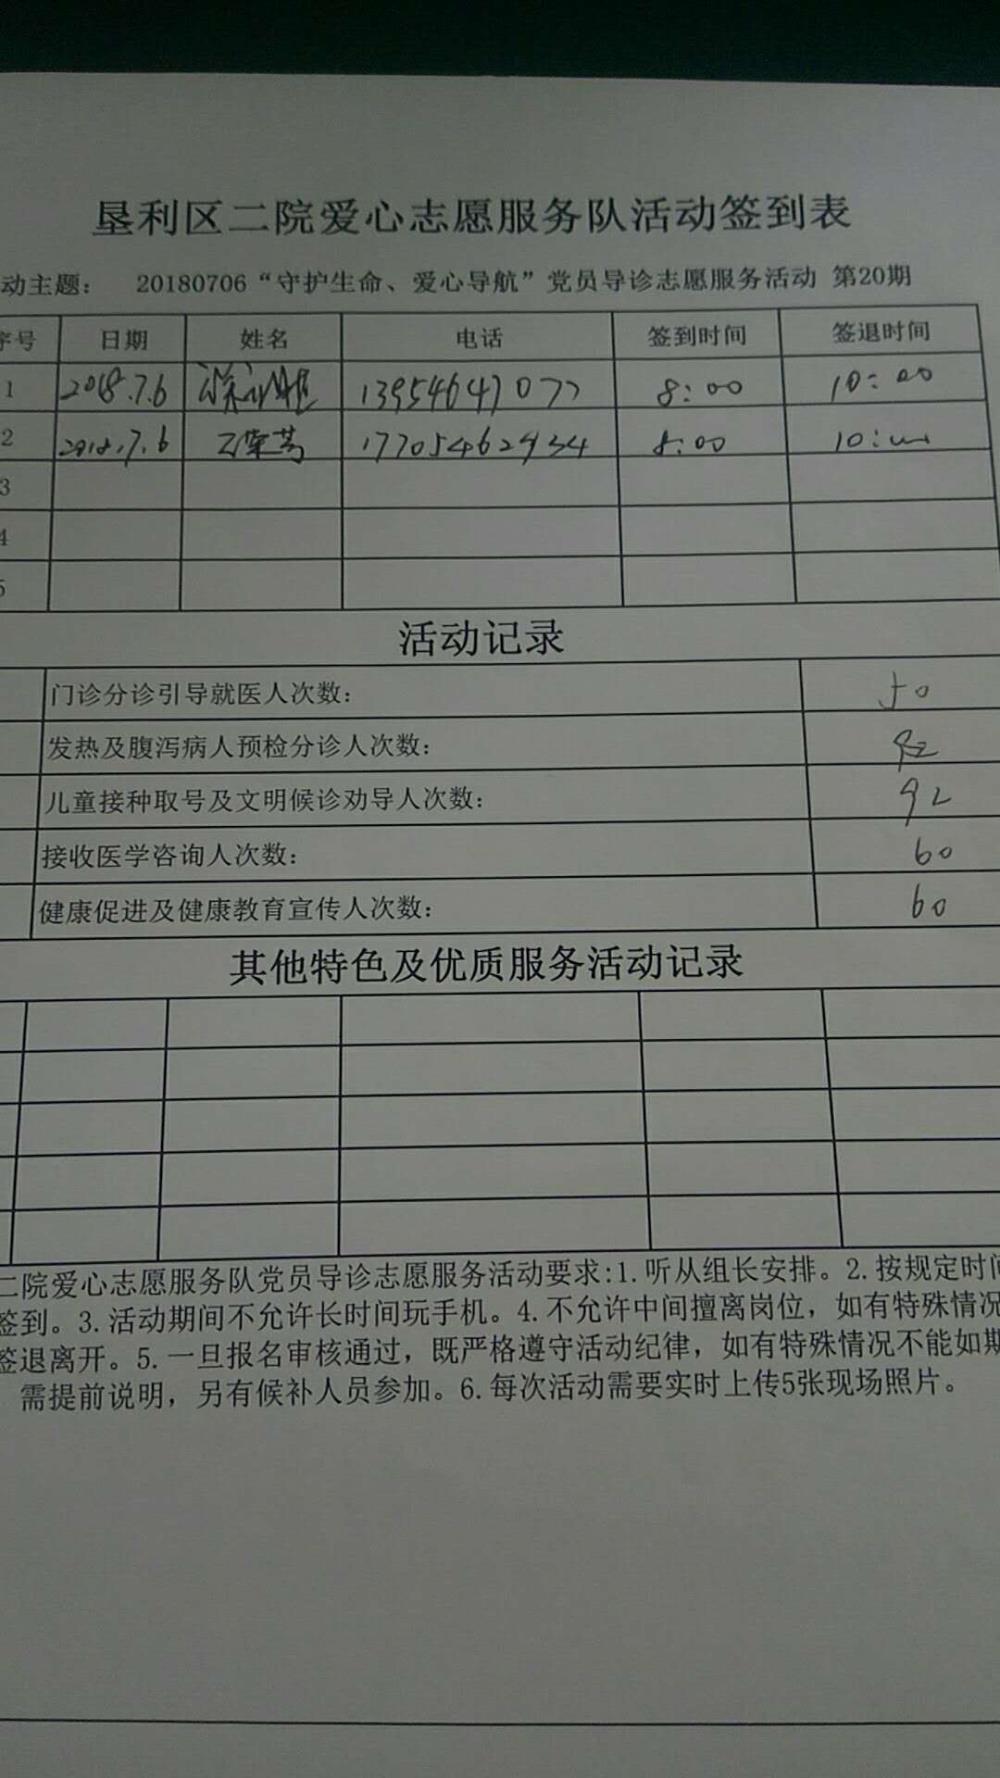 垦利区二院爱心志愿服务队活动签到表
动主题: 20180706“守护生命、爱心导航”党员导诊志愿服务活动 第20期
序号 日期 姓名 电话 签到时间 签退时间
1 2018.7.6 13954647077 8:00 10:00
2 2018.7.6 17705462934 8:00 10:00
3
4
5
活动记录
门诊分诊引导就医人次数: 50
发热及腹泻病人预检分诊人次数:
儿童接种取号及文明候诊劝导人次数: 92
接收医学咨询人次数: 60
健康促进及健康教育宣传人次数: 60
其他特色及优质服务活动记录
二院爱心志愿服务队党员导诊志愿服务活动要求:1.听从组长安排。2.按规定时间
签到。3.活动期间不允许长时间玩手机。4.不允许中间擅离岗位，如有特殊情况
签退离开。5.一旦报名审核通过，既严格遵守活动纪律，如有特殊情况不能如期
需提前说明，另有候补人员参加。6.每次活动需要实时上传5张现场照片。